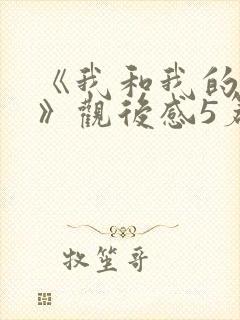 《我和我的
》觀後感5
牧笙哥